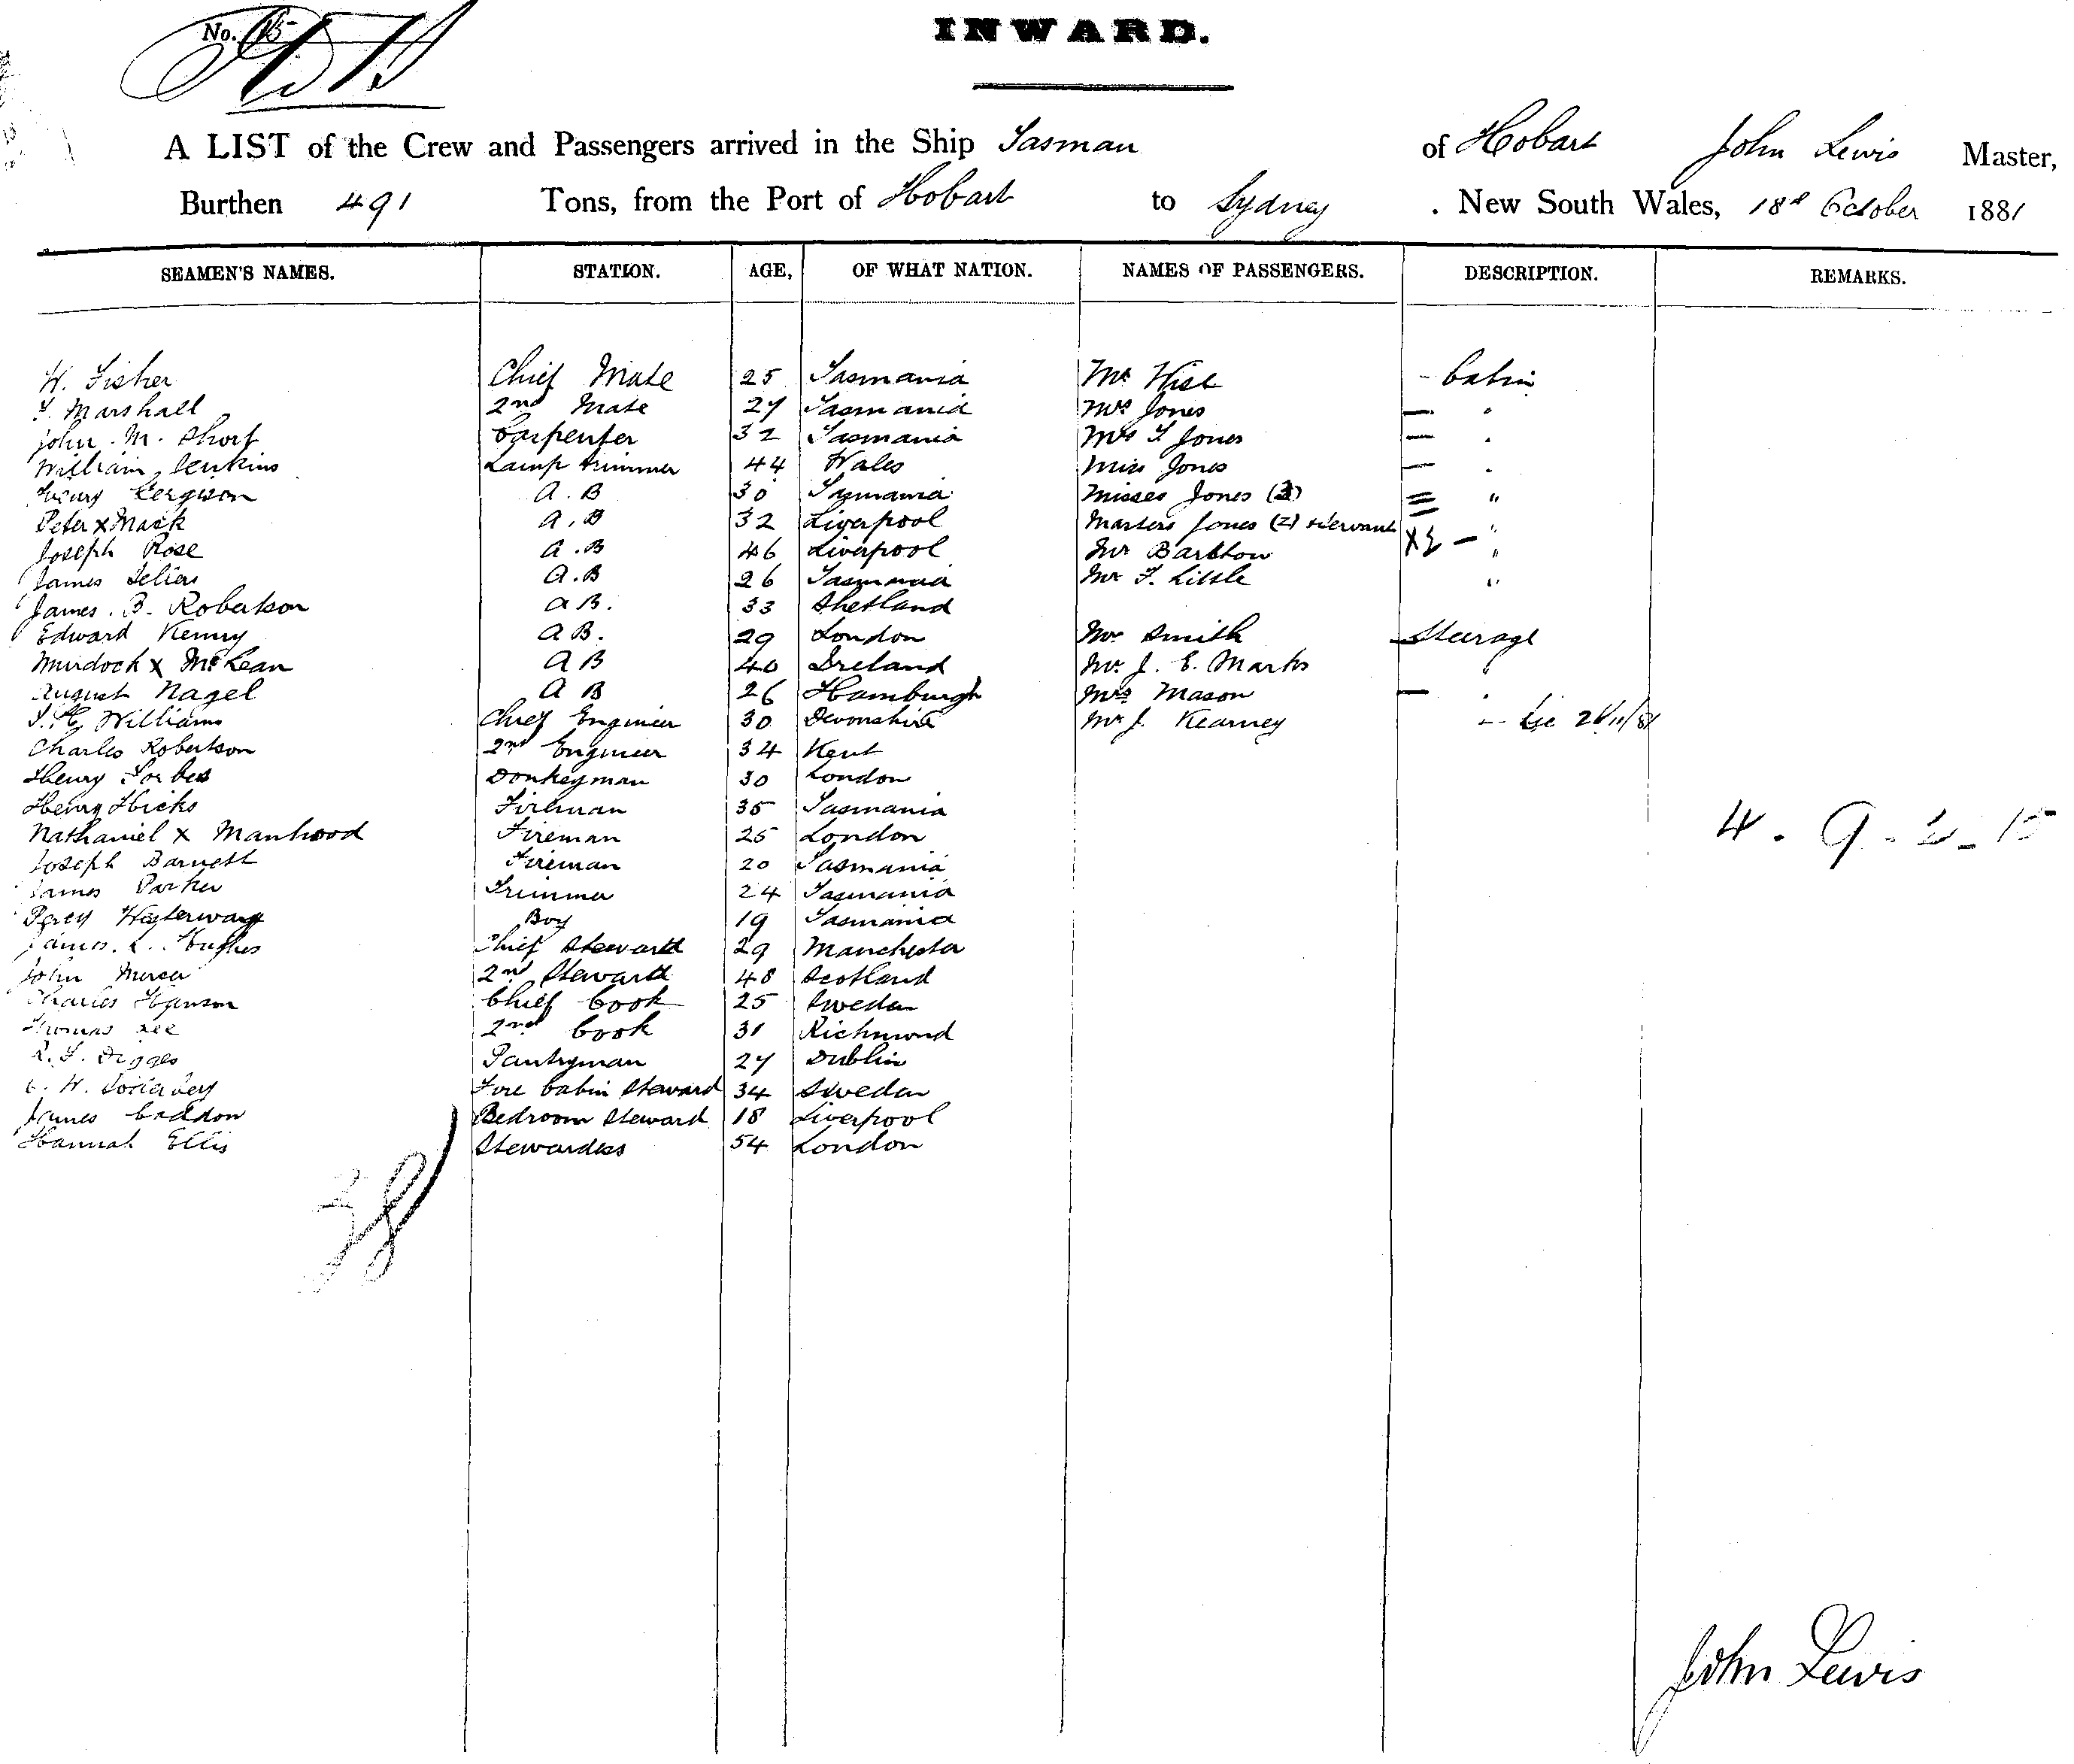 No. 15
INWARD.
A LIST of the Crew and Passengers arrived in the Ship Tasman of Hobart John Lewis Master,
Burthen 491 Tons, from the Port of Hobart to Sydney . New South Wales, 18th October 1881
SEAMEN'S NAMES. STATION. AGE, OF WHAT NATION. NAMES OF PASSENGERS. DESCRIPTION. REMARKS.
W. Fisher Chief Mate 25 Tasmania Mr Wise - Cabin
Marshall 2nd Mate 27 Tasmania Mrs Jones — "
John. M. Short Carpenter 32 Tasmania Mrs T. Jones — "
William Jenkins Lamp trimmer 44 Wales Miss Jones — "
Henry Fergison A.B 30 Tasmania Misses Jones (3) "
Peter x Mack A.B 32 Liverpool Masters Jones (2) + servant "
Joseph Rose A.B 46 Liverpool Mr Barttow "
James A.B 26 Tasmania Mr T. Little "
James. B. Robertson AB. 33 Shetland
Edward Kenny AB. 29 London Mr Smith Steerage
Murdock x McLean AB 40 Ireland Mr. J. E. Marks "
August Nagel AB 26 Hamburgh Mrs Mason — "
Williams Chief Engineer 30 Devonshire Mr J. Kearney
Charles Robertson 2nd Engineer 34 Kent
Henry Forbes Donkeyman 30 London
Henry Hicks Fireman 35 Tasmania
Nathaniel x Manhood Fireman 25 London
4. 9. 2 - 15
Joseph Barnett Fireman 20 Tasmania
James Parker Trimmer 24 Tasmania
Percy Westerway Boy 19 Tasmania
James. L. Hughes Chief Steward 29 Manchester
John Mercer 2nd Steward 48 Scotland
Charles Hanson Chief Cook 25 Sweden
Thomas Lee 2nd Cook 31 Richmond
R. T. Digges Pantryman 27 Dublin
C. W. Fore Cabin Steward 34 Sweden
James Caddon Bedroom Steward 18 Liverpool
Hannah Ellis Stewardess 54 London
John Lewis